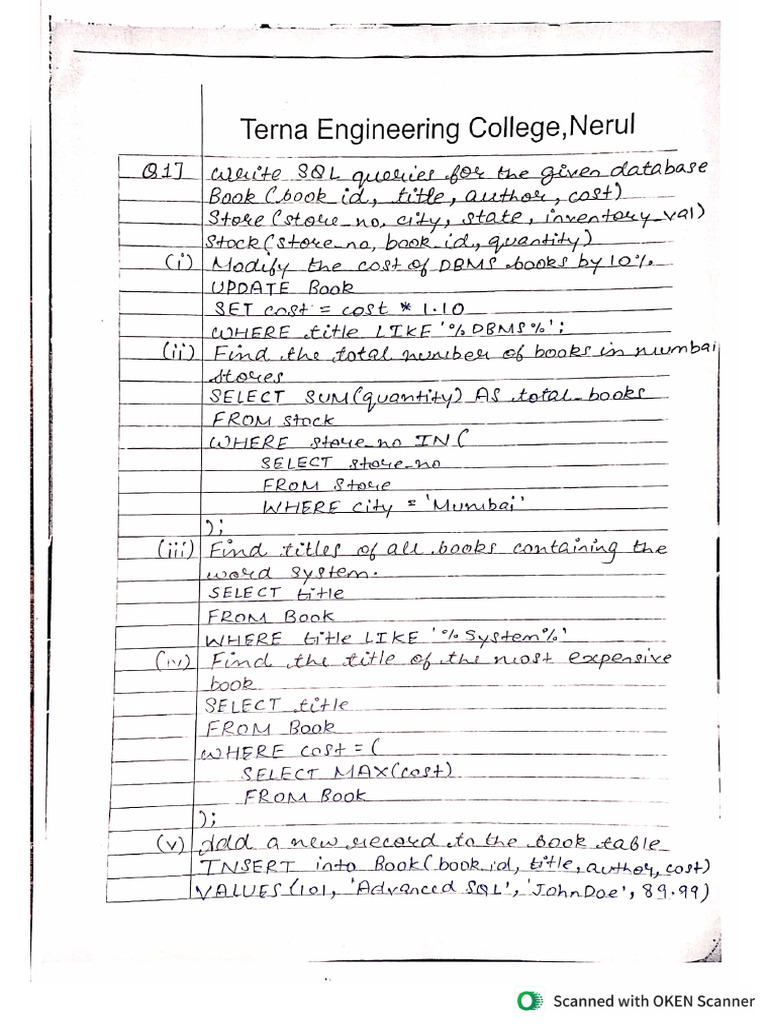 Terna Engineering College,Nerul
Q1] Write SQL queries for the given database
Book (book_id, title, author, cost)
Store (store_no, city, state, inventory_val)
Stock (store_no, book_id, quantity)
(i) Modify the cost of DBMS books by 10%.
UPDATE Book
SET cost = cost * 1.10
WHERE title LIKE '%DBMS%';
(ii) Find the total number of books in mumbai
stores
SELECT SUM(quantity) AS total_books
FROM stock
WHERE store_no IN (
SELECT store_no
FROM Store
WHERE city = 'Mumbai'
);
(iii) Find titles of all books containing the
word system.
SELECT title
FROM Book
WHERE title LIKE '%System%'
(iv) Find the title of the most expensive
book
SELECT title
FROM Book
WHERE cost = (
SELECT MAX(cost)
FROM Book
);
(v) Add a new record to the book table
INSERT into Book (book_id, title, author, cost)
VALUES (101, 'Advanced SQL', 'John Doe', 89.99)
Scanned with OKEN Scanner